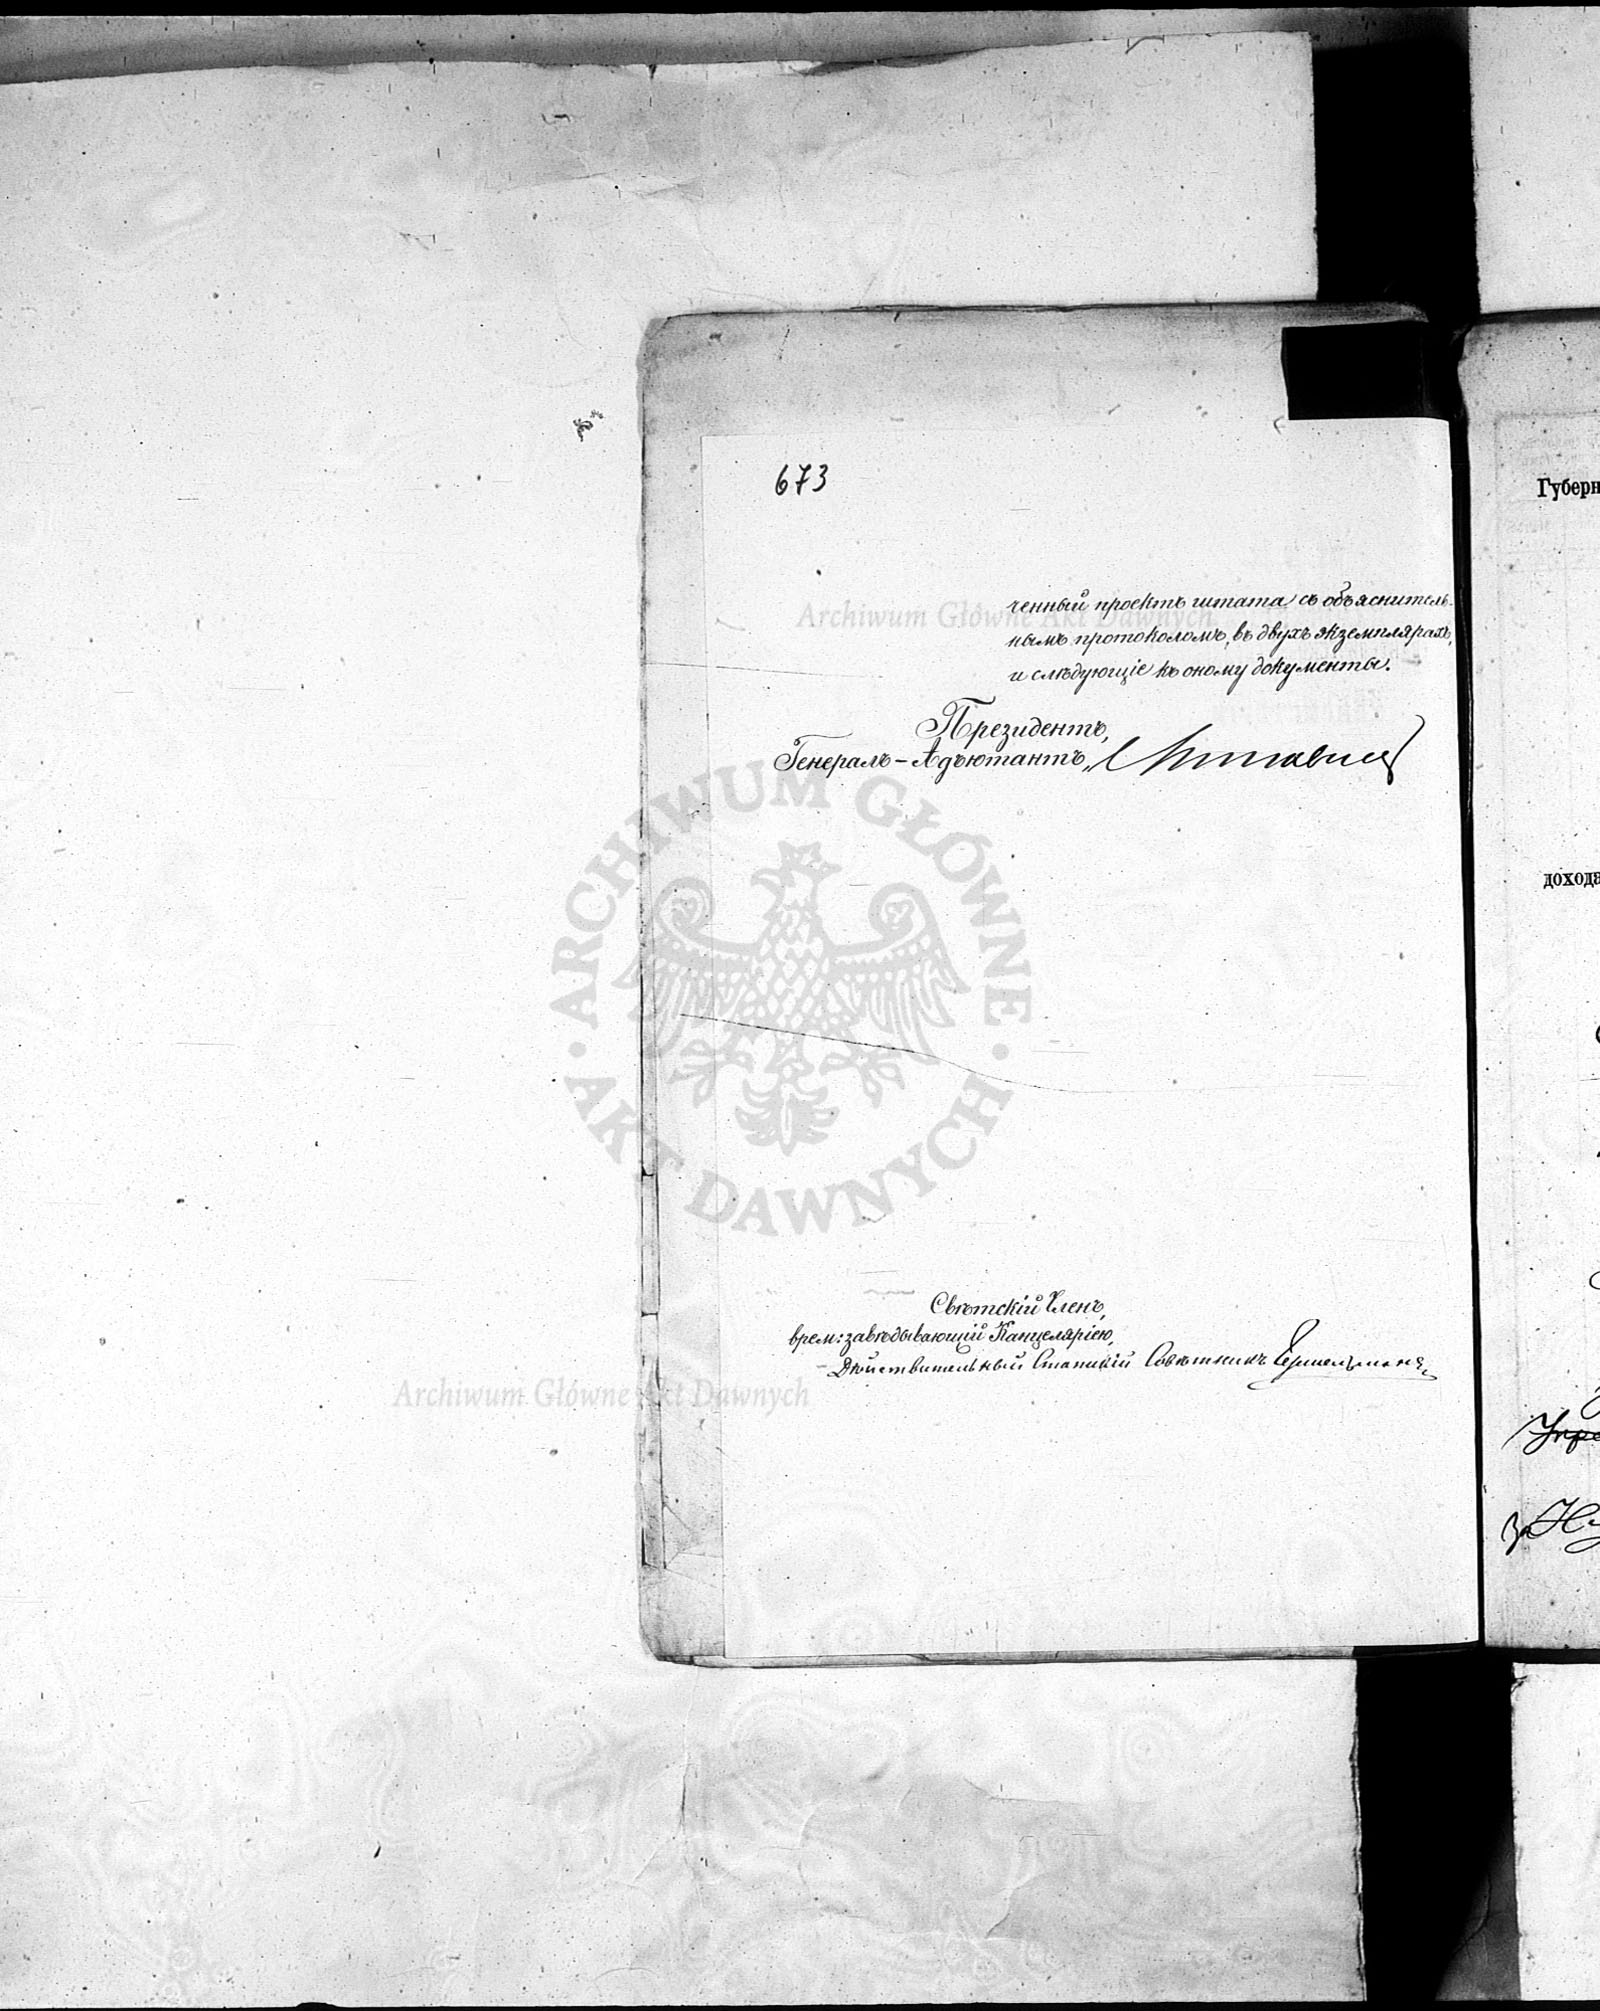 673
ченный проектъ штата съ объяснитель-
нымъ протоколомъ, въ двухъ экземплярахъ,
и слѣдующіе къ оному документы.
Президентъ,
Генералъ-Адъютантъ,
Свѣтскій Членъ,
врем: завѣдывающій Канцеляріею,
Дѣйствительный Статскій Совѣтникъ
Губерн
дохода
Archiwum Główne Akt Dawnych
ARCHIWUM GŁÓWNE · AKT DAWNYCH ·
Archiwum Główne Akt Dawnych